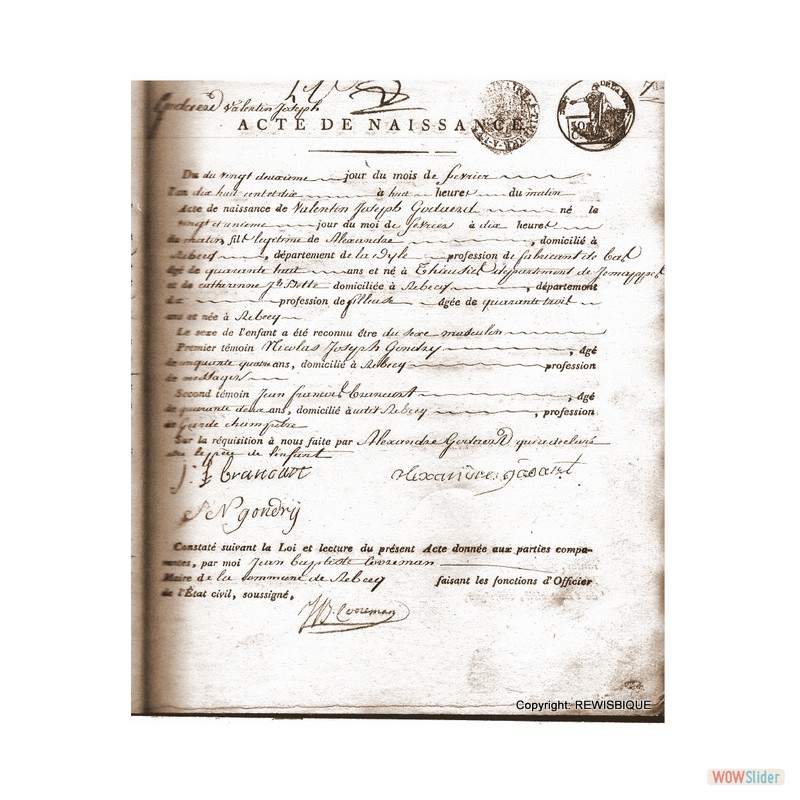 Godaerd Valentin Joseph
ACTE DE NAISSANCE
Du du vingt deuxieme jour du mois de fevrier
l'an dix huit cent et dix à huit heures du matin
Acte de naissance de Valentin Joseph Godaerd né le
vingt et unieme jour du moi de fevrier à dix heures
du matin, fils legitime de Alexandre, domicilié à
Rebecq, département de la Dyle profession de fabricant de bas
âgé de quarante huit ans et né à département de Jemappes
et de catherenne Jh domiciliée à Rebecq, département
profession de filleuse âgée de quarante trois
ans et née à Rebecq
Le sexe de l'enfant a été reconnu être du sexe masculin
Premier témoin Nicolas Joseph Gondry, âgé
de cinquante quatre ans, domicilié à Rebecq profession
de messager
Second témoin Jean francois brancart, âgé
de quarante deux ans, domicilié à udit Rebecq, profession
de Garde champetre
Sur la réquisition à nous faite par Alexandre Godaerd qui a declaré
etre le père de l'enfant
J: f brancart Alexandre godaert
N gondrÿ
Constaté suivant la Loi et lecture du présent Acte donnée aux parties compa-
rantes, par moi Jean baptiste Cooreman
Maire de la commune de Rebecq faisant les fonctions d'Officier
de l'État civil, soussigné,
JB. Cooreman
Copyright: REWISBIQUE
WOWSlider